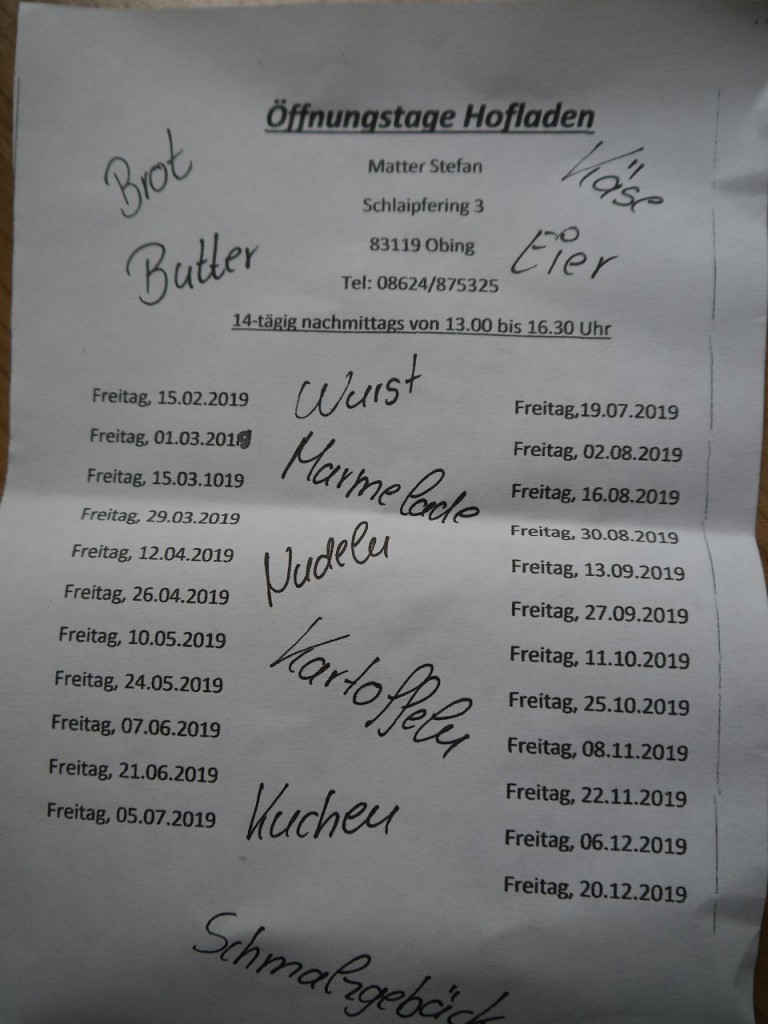 Öffnungstage Hofladen
Brot
Matter Stefan
Käse
Schlaipfering 3
Butter
83119 Obing
Eier
Tel: 08624/875325
14-tägig nachmittags von 13.00 bis 16.30 Uhr
Freitag, 15.02.2019
Freitag, 01.03.2019
Freitag, 15.03.1019
Freitag, 29.03.2019
Freitag, 12.04.2019
Freitag, 26.04.2019
Freitag, 10.05.2019
Freitag, 24.05.2019
Freitag, 07.06.2019
Freitag, 21.06.2019
Freitag, 05.07.2019
Wurst
Marmelade
Nudeln
Kartoffeln
Kuchen
Freitag,19.07.2019
Freitag, 02.08.2019
Freitag, 16.08.2019
Freitag, 30.08.2019
Freitag, 13.09.2019
Freitag, 27.09.2019
Freitag, 11.10.2019
Freitag, 25.10.2019
Freitag, 08.11.2019
Freitag, 22.11.2019
Freitag, 06.12.2019
Freitag, 20.12.2019
Schmalzgebäck